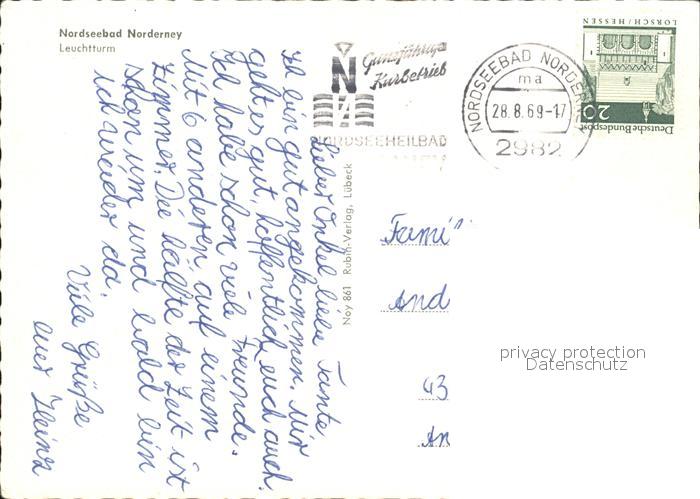 Nordseebad Norderney
Leuchtturm
Ganzjähriger
Kurbetrieb
N
NORDSEEHEILBAD
NORDSEEBAD NORDERNEY
ma
28.8.69-17
2982
LORSCH/HESSEN
20
Deutsche Bundespost
Lieber Onkel, liebe Tante
Ich bin gut angekommen. Mir
geht es gut, hoffentlich euch auch.
Ich habe schon viele Freunde.
Mit 6 anderen auf einem
Zimmer. Die hälfte der Zeit ist
schon um und bald bin
ich wieder da.
Viele Grüße
euer Heinz
Noy 861 Rubin-Verlag, Lübeck
Fami
And
43
An
privacy protection
Datenschutz